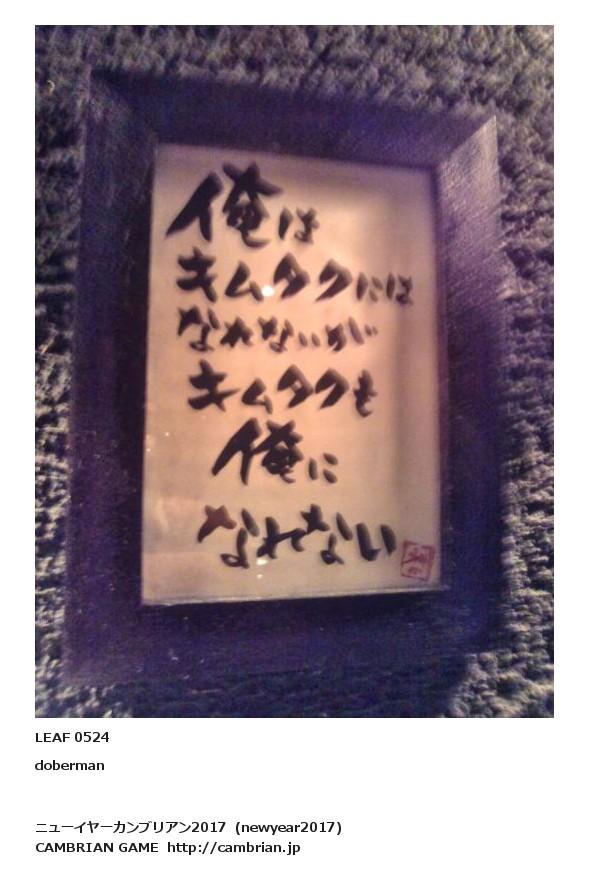 俺は
キムタクには
なれないが
キムタクも
俺に
なれない
LEAF 0524
doberman
ニューイヤーカンブリアン2017 (newyear2017)
CAMBRIAN GAME http://cambrian.jp